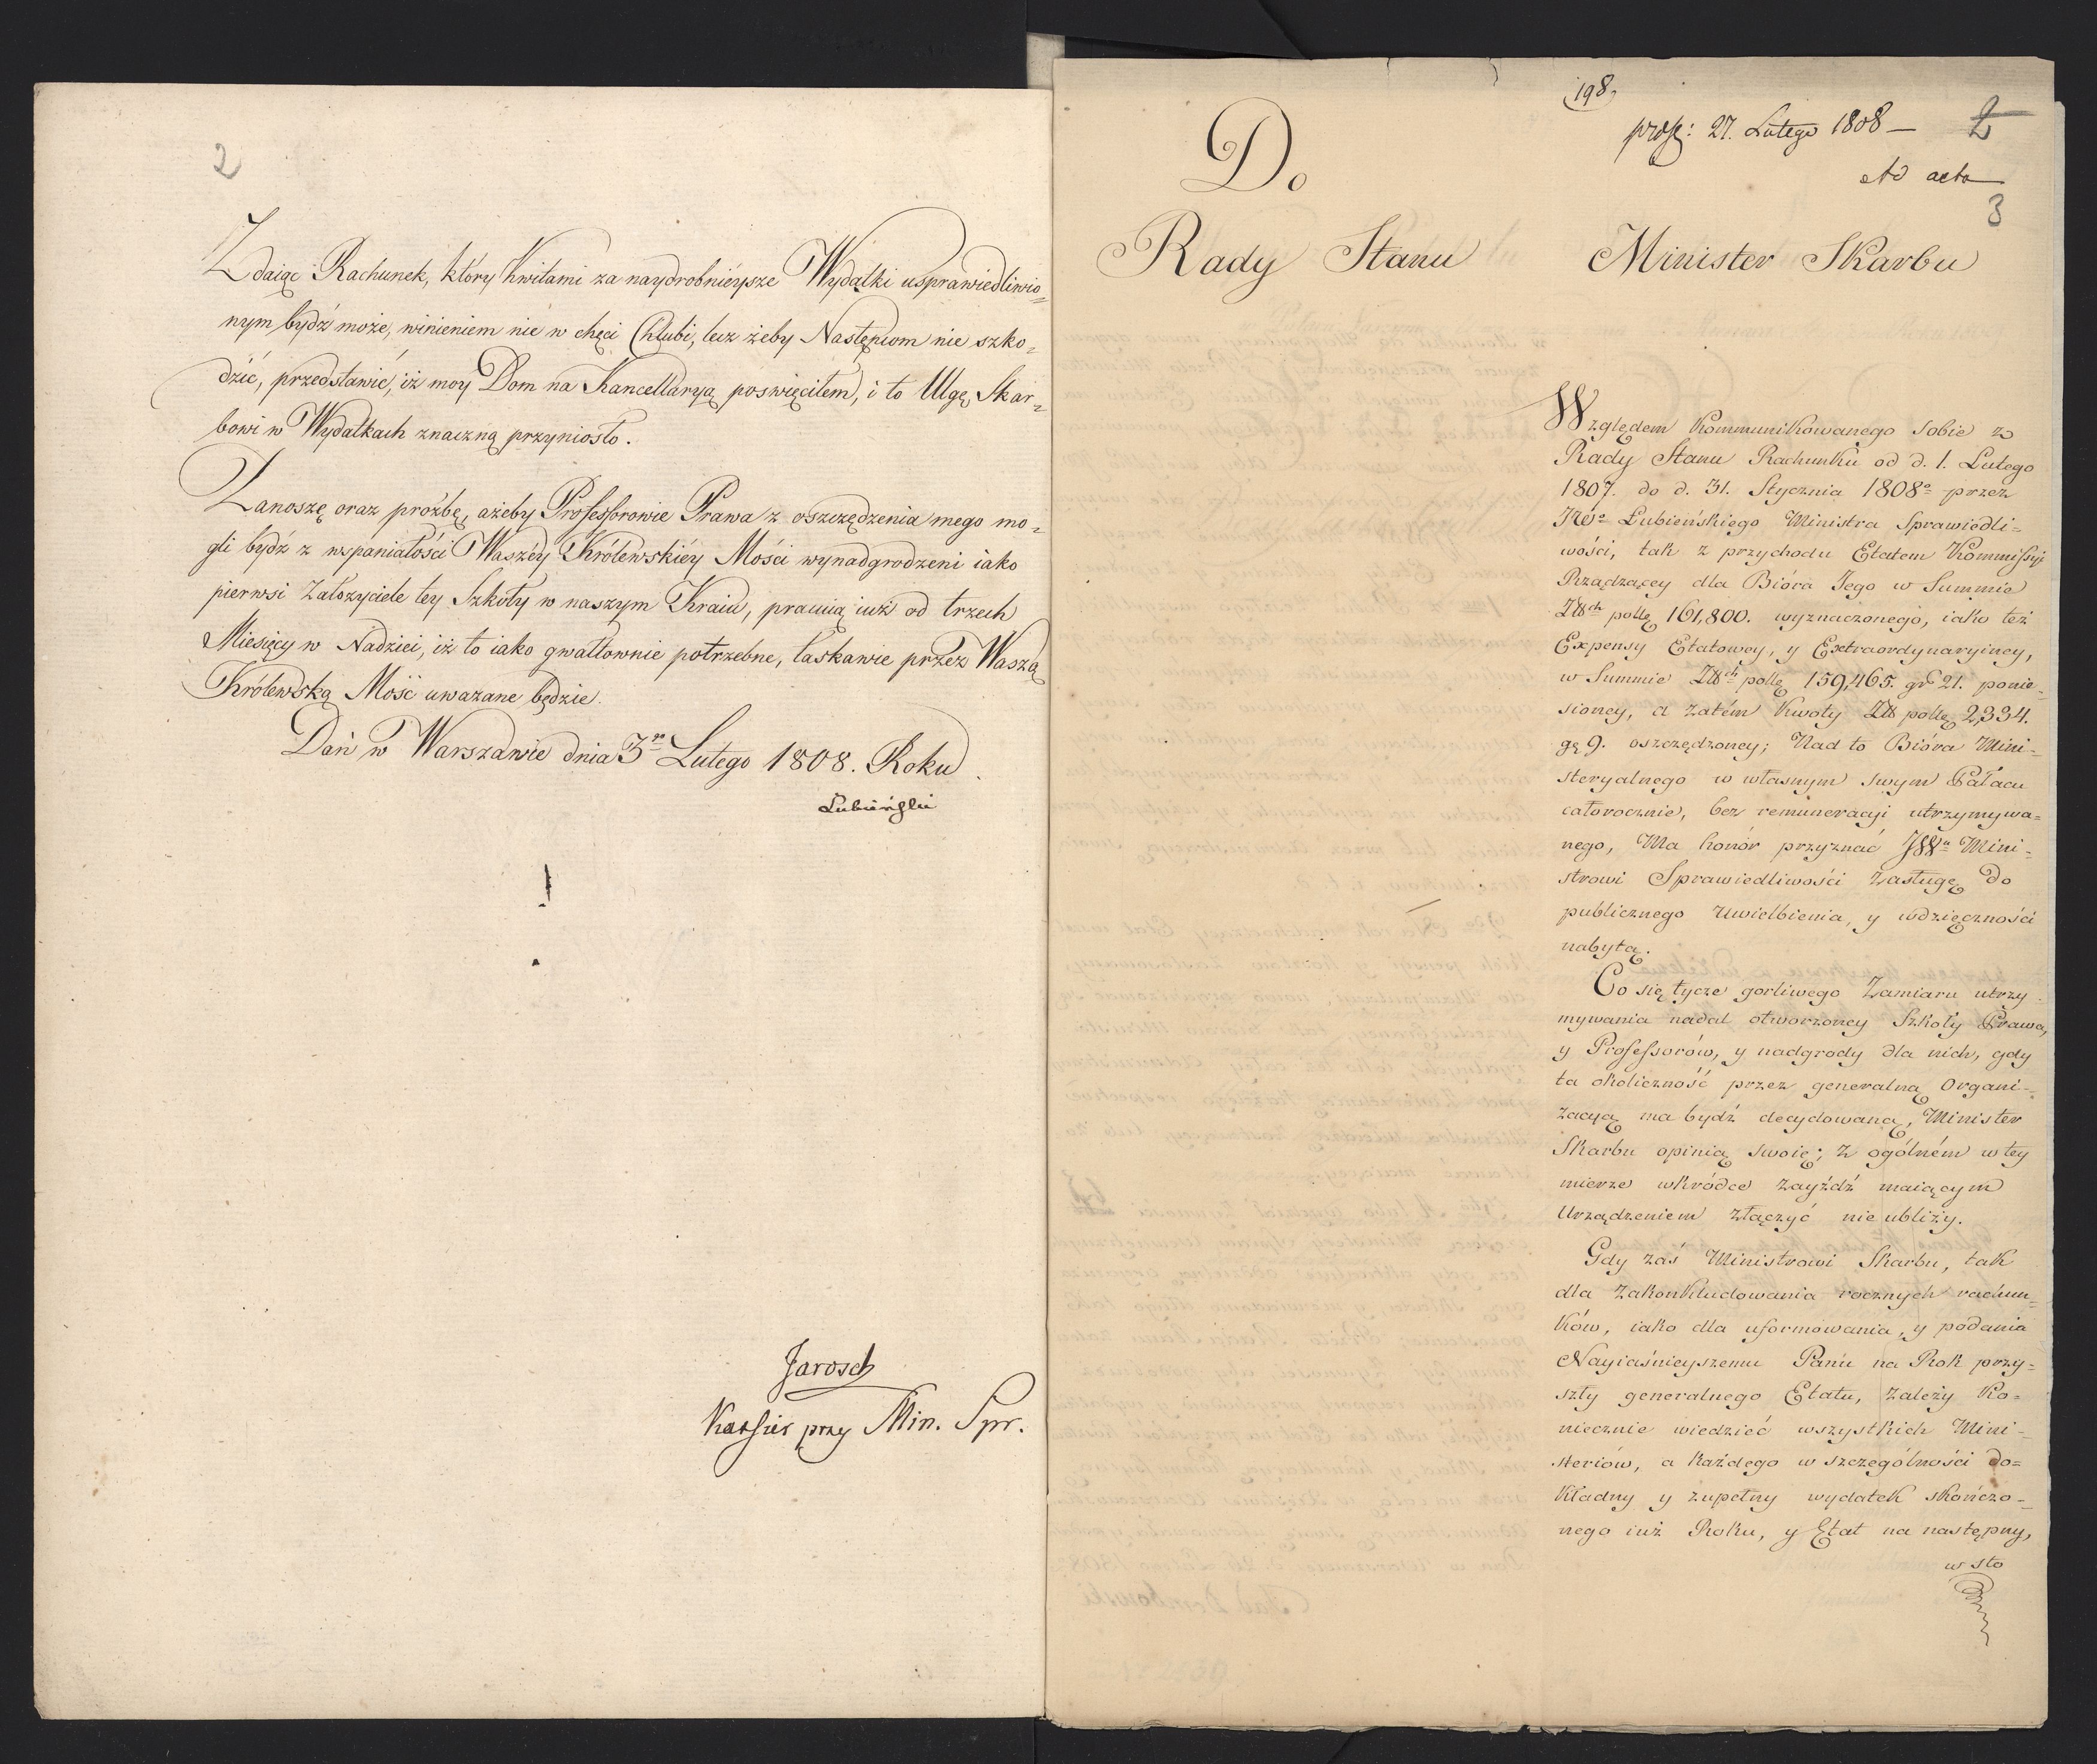 2
Zdaiąc Rachunek, który Kwitami za naydrobnieysze Wydatki usprawiedliwio=
nym bydź może, winieniem nie w chęci Chlubi, lecz żeby Następcom nie szko=
dzić, przedstawić, iż moy Dom na Kancellaryą poswięciłem, i to Ulgę Skar=
bowi w Wydatkach znaczną przyniosło.
Zanoszę oraz prożbę, ażeby Professorowie Prawa z oszczędzenia mego mo=
gli bydź z wspaniałości Waszéy Królewskiéy Mości wynadgrodzeni iako
pierwsi Założyciele tey Szkoły w naszym Kraiu, pracuią iuż od trzech
Miesięcy w Nadziei, iż to iako gwałtownie potrzebne, łaskawie przez Waszą
Królewską Mość uwazane będzie.
Dań w Warszawie dnia 3go Lutego 1808. Roku.
Lubieński
Jarosch
Kassier przy Min. Spr.
198,
27. Lutego 1808 — 2
Ad acta
3
Do
Rady Stanu
Minister Skarbu
Względem Kommunikowanego sobie z
Rady Stanu Rachunku od d. 1. Lutego
1807. do d. 31. Stycznia 1808o przez
Łubieńskiego Ministra Sprawiedli=
wości, tak z przychodu Etatem Kommissyi
Rządzącey dla Bióra Jego w Summie
Złłch polle 161,800. wyznaczonego, iako też
Expensy Etatowey, y Extraordynaryiney,
w Summie Złłch polle 159,465. gr 21. ponie=
sioney, a zatém Kwoty Złł polle 2,334.
gę 9. oszczędzoney; Nad to Bióra Mini=
steryalnego w własnym swym Pałacu
całorocznie, bez remuneracyi utrzymywa=
nego, Ma honór przyznać JWu Mini=
strowi Sprawiedliwości Zasługę do
publicznego Uwielbienia, y wdzięczności
nabytą.
Co się tycze gorliwego Zamiaru utrzy=
mywania nadal otworzoney Szkoły Prawa,
y Professorów, y nadgrody dla nich, gdy
ta okoliczność przez generalną Organi=
zacyą ma bydź decydowaną, Minister
Skarbu opinią swoię; z ogólném w tey
mierze wkródce zayźdź maiącym
Urządzeniem złączyć nie ubliży.
Gdy zaś Ministrowi Skarbu, tak
dla zakonkludowania rocznych rachun=
ków, iako dla uformowania, y podania
Nayiaśnieyszemu Panu na Rok przy=
szły generalnego Etatu, zależy Ko=
niecznie wiedzieć wszystkich Mini=
steriów, a każdego w szczególności do=
kładny y zupełny wydatek skończo=
nego iuż Roku, y Etat na następny,
w sto